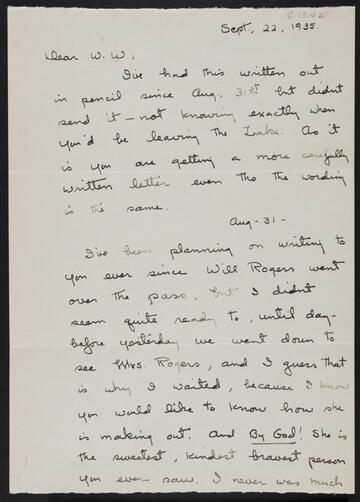 C:13:42
Sept. 22, 1935.
Dear W. W;
I've had this written out
in pencil since Aug. 31st but didnt
send it — not knowing exactly when
you'd be leaving the Lake. As it
is you are getting a more carefully
written letter even tho the wording
is the same.
Aug - 31 -
I've been planning on writing to
you ever since Will Rogers went
over the pass, but I didnt
seem quite ready to, until day-
before yesterday we went down to
see Mrs. Rogers, and I guess that
is why I waited, because I know
you would like to know how she
is making out. And By God! She is
the sweetest, kindest bravest person
you ever saw. I never was much